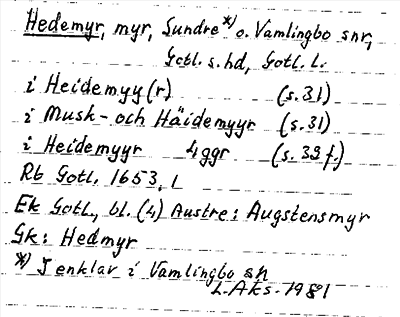 Hedemyr, myr, Sundre *) o. Vamlingbo snr,
Gotl. s. hd, Gotl. L.
i Heidemyy(r) (s.31)
i Musk- och Häidemyyr (s.31)
i Heidemyyr 4 ggr (s.33 f.)
Rb Gotl. 1653, 1
Ek Gotl., bl. (4) Austre: Augstensmyr
Gk: Hedmyr
*) I enklav i Vamlingbo sn
L.Aks. 1981